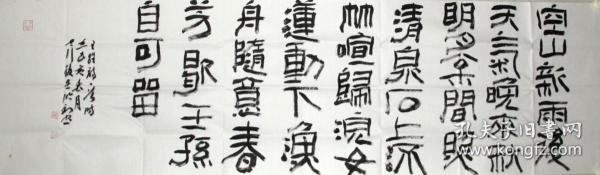 空山新雨後
天氣晚來秋
明月松間照
清泉石上流
竹喧歸浣女
蓮動下漁
舟隨意春
芳歇王孫
自可留
孔夫子旧书网